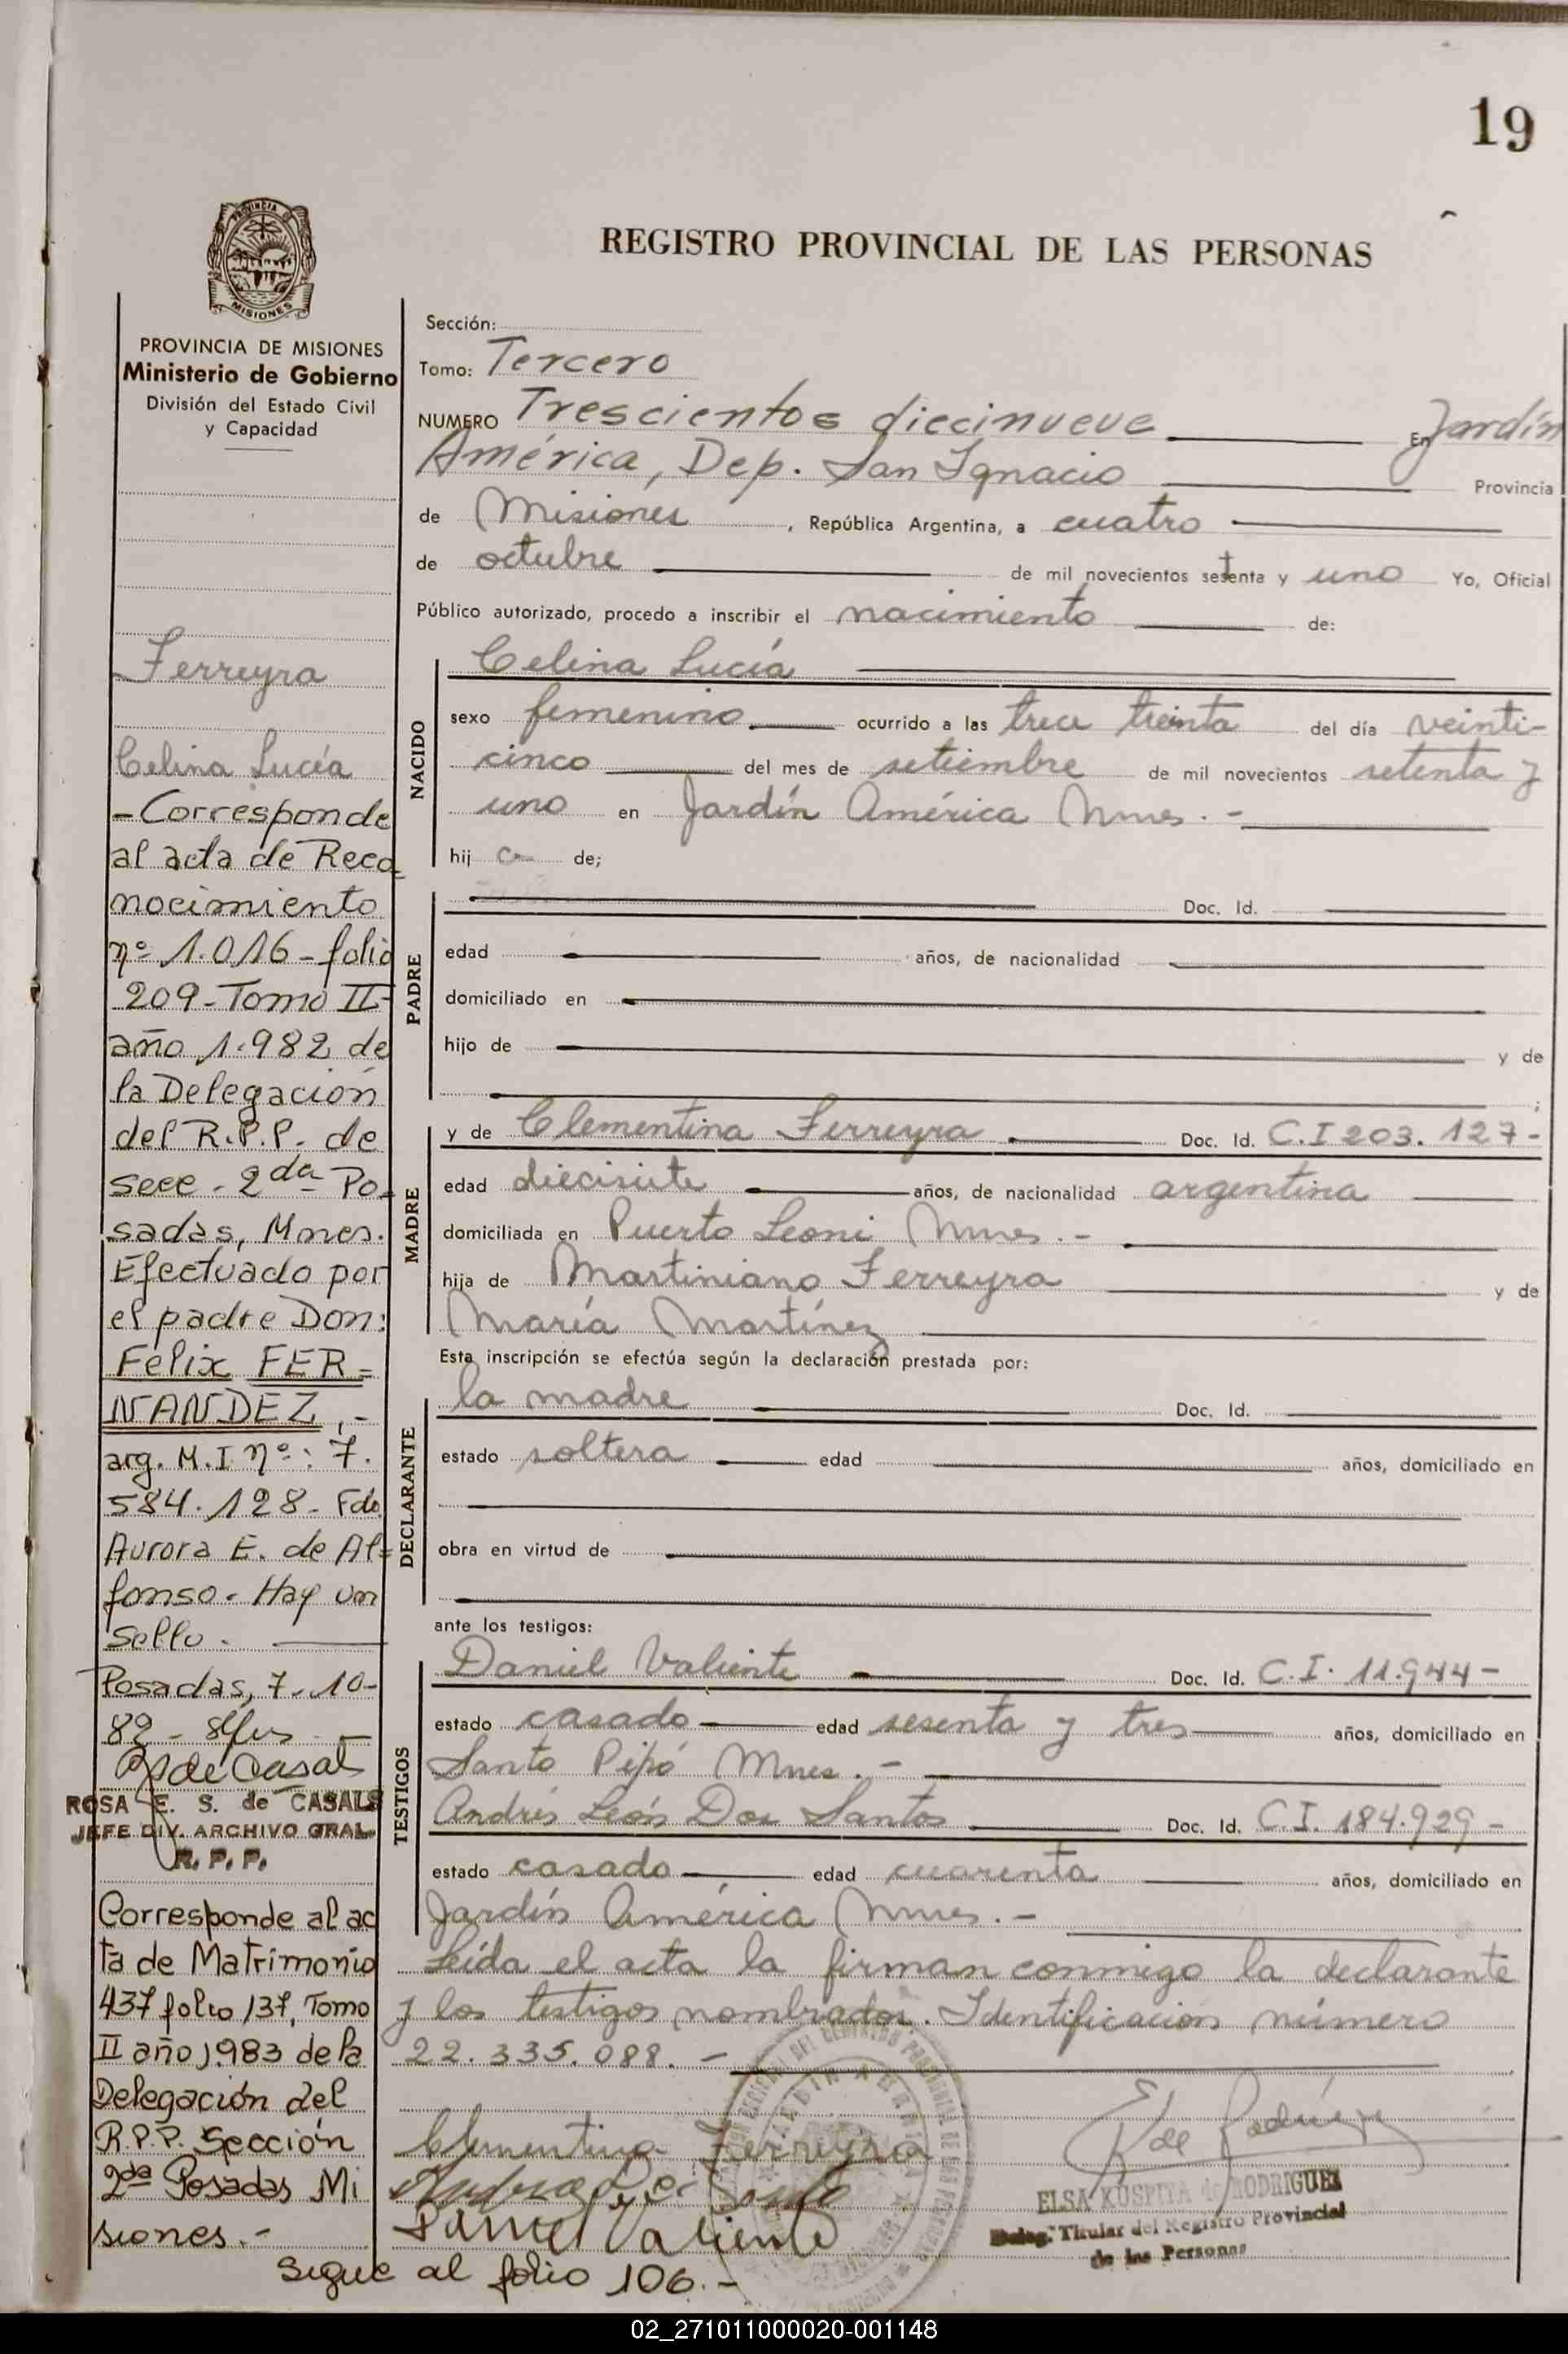 19
PROVINCIA DE
MISIONES
REGISTRO PROVINCIAL DE LAS PERSONAS
PROVINCIA DE MISIONES
Ministerio de Gobierno
División del Estado Civil
y Capacidad
Ferreyra
Celina Lucía
-Corresponde
al acta de Reco
nocimiento
nº 1.016-folio
209-Tomo II-
año 1.982 de
la Delegación
del R.P.P. de
secc. 2da Po-
sadas, Mnes.
Efectuado por
el padre Don:
Felix FER=
NANDEZ,-
arg. M.I nº: 7.
584.128- Fdo
Aurora E. de Al=
fonso. Hay un
Sello.
Posadas, 7-10-
82-
de Casals
ROSA E. S. de CASALS
JEFE DIV. ARCHIVO GRAL.
R. P. P.
Corresponde al ac
ta de Matrimonio
437 folio 137, Tomo
II año 1983 de la
Delegación del
R.P.P. Sección
2da Posadas Mi
siones.-
Sección:
Tomo: Tercero
NUMERO Trescientos diecinueve En Jardín
América, Dep. San Ignacio Provincia
de Misiones, República Argentina, a cuatro
de octubre de mil novecientos setenta y uno Yo, Oficial
Público autorizado, procedo a inscribir el nacimiento de:
NACIDO
Celina Lucía
sexo femenino ocurrido a las trece treinta del día veinti-
cinco del mes de setiembre de mil novecientos setenta y
uno en Jardín América Mnes.-
hij a de;
PADRE
Doc. Id.
edad años, de nacionalidad
domiciliado en
hijo de y de
;
MADRE
y de Clementina Ferreyra Doc. Id. C.I 203.127-
edad diecisiete años, de nacionalidad argentina
domiciliada en Puerto Leoni Mnes.-
hija de Martiniano Ferreyra y de
María Martínez
Esta inscripción se efectúa según la declaración prestada por:
DECLARANTE
la madre Doc. Id.
estado soltera edad años, domiciliado en
obra en virtud de
ante los testigos:
TESTIGOS
Daniel Valiente Doc. Id. C.I. 11.944-
estado casado edad sesenta y tres años, domiciliado en
Santo Pipó Mnes.-
Andrés León Dos Santos Doc. Id. C.I. 184.929-
estado casado edad cuarenta años, domiciliado en
Jardín América Mnes.-
Leída el acta la firman conmigo la declarante
y los testigos nombrados. Identificación número
22.335.088.-
Clementina Ferreyra
Daniel Valiente
E R de Rodríguez
ELSA KUSPITA de RODRIGUEZ
Deleg. Titular del Registro Provincial
de las Personas
Sigue al folio 106.-
02_271011000020-001148